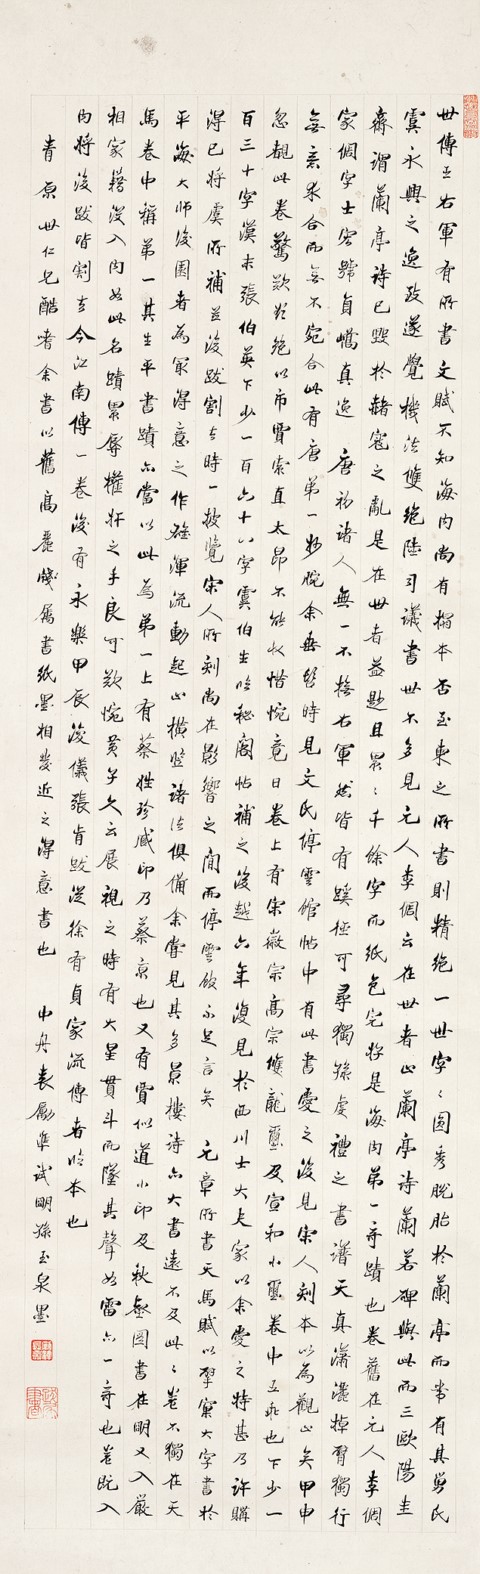 世傳王右軍有所書文賦不知海內尚有搨本否至東之所書則精絕一世字〻圓秀脫胎於蘭亭而常有其筋氏
虞永興之逸致遂覺機法雙絕陸司議書世不多見元人李倜云在世者止蘭亭詩蘭若碑與此而三歐陽圭
齋謂蘭亭詩已毀於赭寇之亂是在世者益尟且累〻千餘字而紙色完好是海內第一奇蹟也卷舊在元人李倜
家倜字士宏號員嶠真逸 唐初諸人無一不橅右軍然皆有蹊徑可尋獨孫虔禮之書譜天真瀟灑掉臂獨行
無意求合而無不宛合此有唐第一妙腕余無暫時見文氏停雲館帖中有此書愛之後見宋人刻本以為觀止矣甲申
忽覩此卷驚歎欲絕以市賈索直太昂不能收惜惋竟日卷上有宋徽宗高宗雙龍璽及宣和小璽卷中五乖也下少一
百三十字漢末張伯英下少一百六十八字虞伯生臨秘閣帖補之後越六年復見於西川士大夫家以余愛之特甚乃許購
得已將虞所補並後跋割去時一披覽宋人所刻尚在影響之間而停雲故不足言矣 元章所書天馬賦以擘窠大字書於
平海大師後園者為最得意之作雄渾流動起止橫豎諸法俱備余嘗見其多景樓詩亦大書遠不及此〻卷不獨在天
馬卷中稱第一其生平書蹟亦當以此為第一上有蔡姓珍藏印乃蔡京也又有賈似道小印及秋壑圖書在明又入嚴
相家籍沒入內如此名蹟累辱權奸之手良可歎惋黃子久云展視之時有大星貫斗而墜其聲如雷亦一奇也卷既入
內將後跋皆割去今江南傳一卷後有永樂甲辰浚儀張肯跋從徐有貞家流傳者臨本也
青原世仁兄酷嗜余書以舊高麗牋屬書紙墨相發近之得意書也 中舟袁勵準試明孫玉泉墨